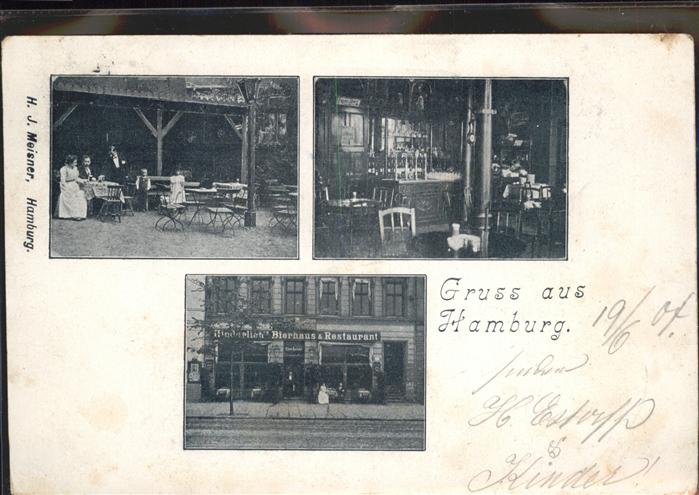 H. J. Meisner, Hamburg.
Hinderlich's Bierhaus & Restaurant
Gruss aus
Hamburg.
19/6 04.
H. Estorff
&
Kinder!